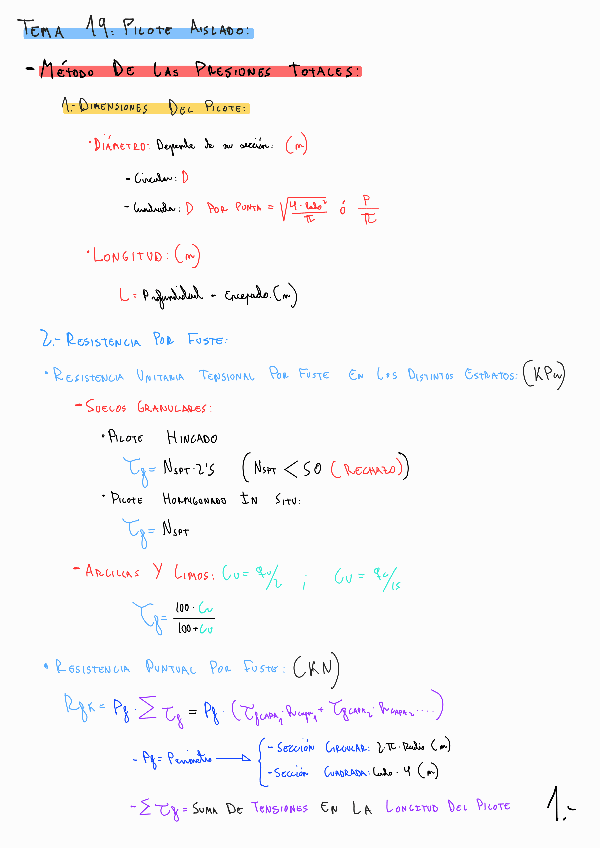 TEMA 19: PILOTE AISLADO:
- MÉTODO DE LAS PRESIONES TOTALES:
1.- DIMENSIONES DEL PILOTE:
· DIÁMETRO: Depende de su sección: (m)
- Circular: D
- Cuadrada: D POR PUNTA = √(4·lado²/π) ó P/π
· LONGITUD: (m)
L = Profundidad - Encepado. (m)
2.- RESISTENCIA POR FUSTE:
· RESISTENCIA UNITARIA TENSIONAL POR FUSTE EN LOS DISTINTOS ESTRATOS: (KPa)
- SUELOS GRANULARES:
· PILOTE HINCADO
τf = NSPT·2'5 (NSPT < 50 (RECHAZO))
· PILOTE HORMIGONADO IN SITU:
τf = NSPT
- ARCILLAS Y LIMOS: Cu = qu/2 ; Cu = qc/15
τf = 100·Cu / 100+Cu
· RESISTENCIA PUNTUAL POR FUSTE: (KN)
Rfk = Pf · Σ τf = Pf · (τf CAPA1 · hcapa1 + τf CAPA2 · hcapa2 ....)
- Pf = Perímetro → { - SECCIÓN CIRCULAR: 2·π·Radio (m)
- SECCIÓN CUADRADA: Lado · 4 (m)
- Σ τf = SUMA DE TENSIONES EN LA LONGITUD DEL PILOTE
1.-